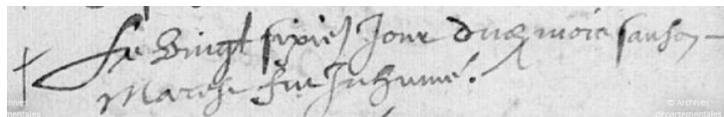 Le Vingt sixieſ Jour dud mois sanson
Marche fut Inhumé.
© Archives
départementales